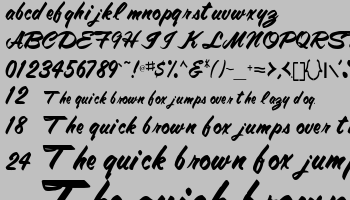 abcdefghijklmnopqrstuvwxyz
ABCDEFGHIJKLMNOPQRST
0123456789
12 The quick brown fox jumps over the lazy dog.
18 The quick brown fox jumps over the
24 The quick brown fox jump
The quick brown